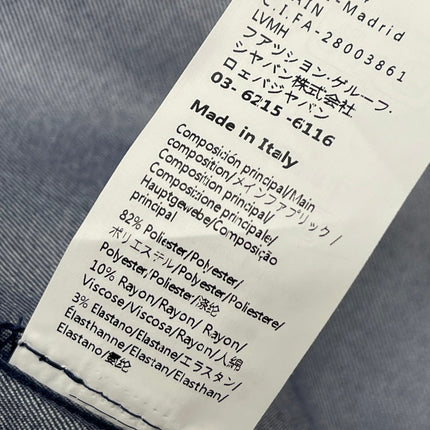 AIN -Madrid
C.I.F A-28003861
LVMH
ファッション・グループ・
ジャパン株式会社
ロエバジャパン
03- 6215 -6116
Made in Italy
Composición principal/Main
composition/メインファブリック /
Composition principal/
Composizione principale/
Hauptgewebe/Composição
principal
82% Poliester/Polyester/
ポリエステル/Polyester/Poliestere/
Polyester/Poliester/涤纶
10% Rayon/Rayon/ Rayon/
Viscose/Viscosa/Rayon/人綿
3% Elastano/Elastane/エラスタン/
Elasthanne/Elastan/Elasthan/
Elastano/氨纶